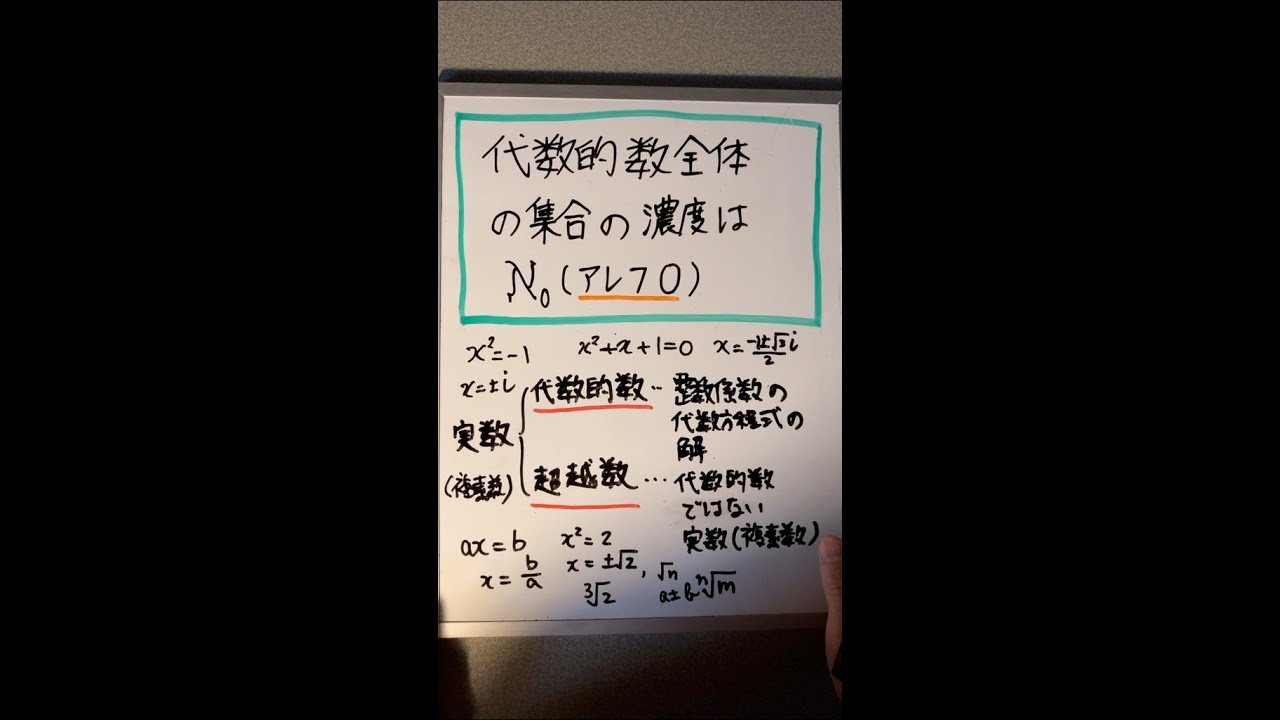 代数的数全体
の集合の濃度は
ℵ₀(アレフ0)
x²=-1 x²+x+1=0 x=(-1±√3)/2 i
x=±i
代数的数… 整数係数の
代数方程式の
解
実数
(複素数)
超越数… 代数的数
ではない
実数(複素数)
ax=b x²=2
x=b/a x=±√2, √n
³√2 a±b ⁿ√m